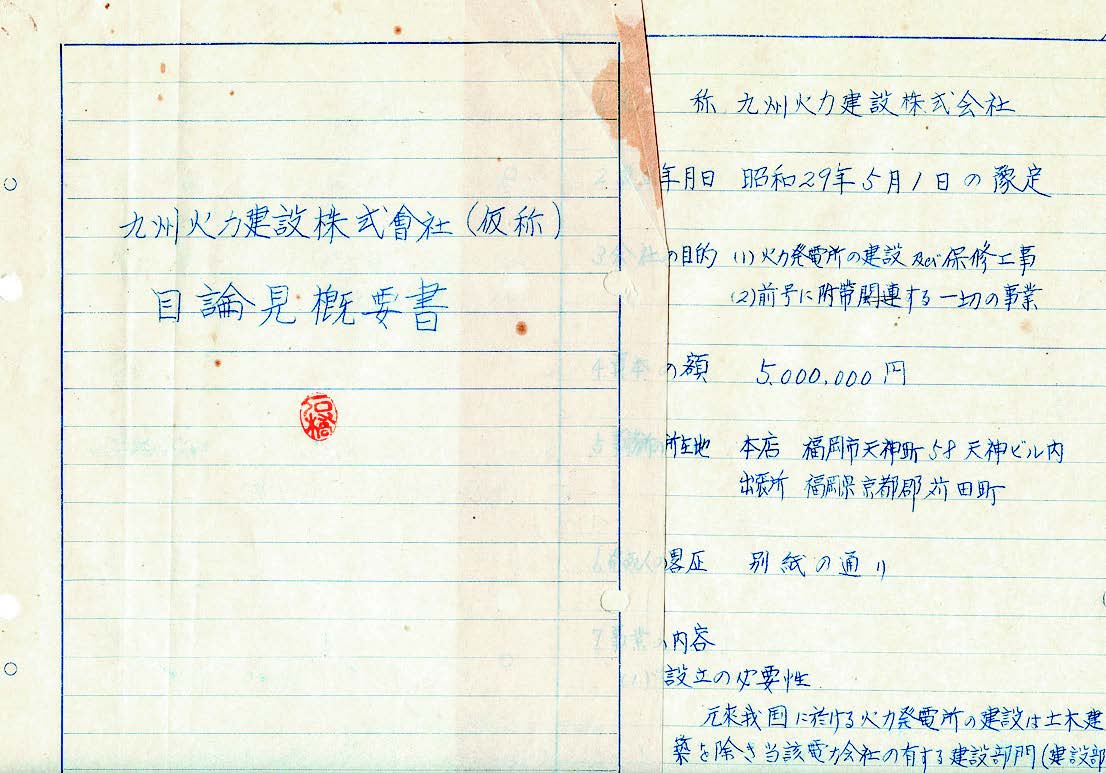 九州火力建設株式會社(仮称)
目論見概要書
石橋
称 九州火力建設株式会社
年月日 昭和29年5月1日の豫定
3 会社の目的 (1)火力発電所の建設及び保修工事
(2)前号に附帯関連する一切の事業
4 資本の額 5,000,000円
所在地 本店 福岡市天神町58天神ビル内
出張所 福岡県京都郡苅田町
畧歴 別紙の通り
7 事業の内容
設立の必要性
元来我国に於ける火力発電所の建設は土木建
築を除き当該電力会社の有する建設部門(建設部